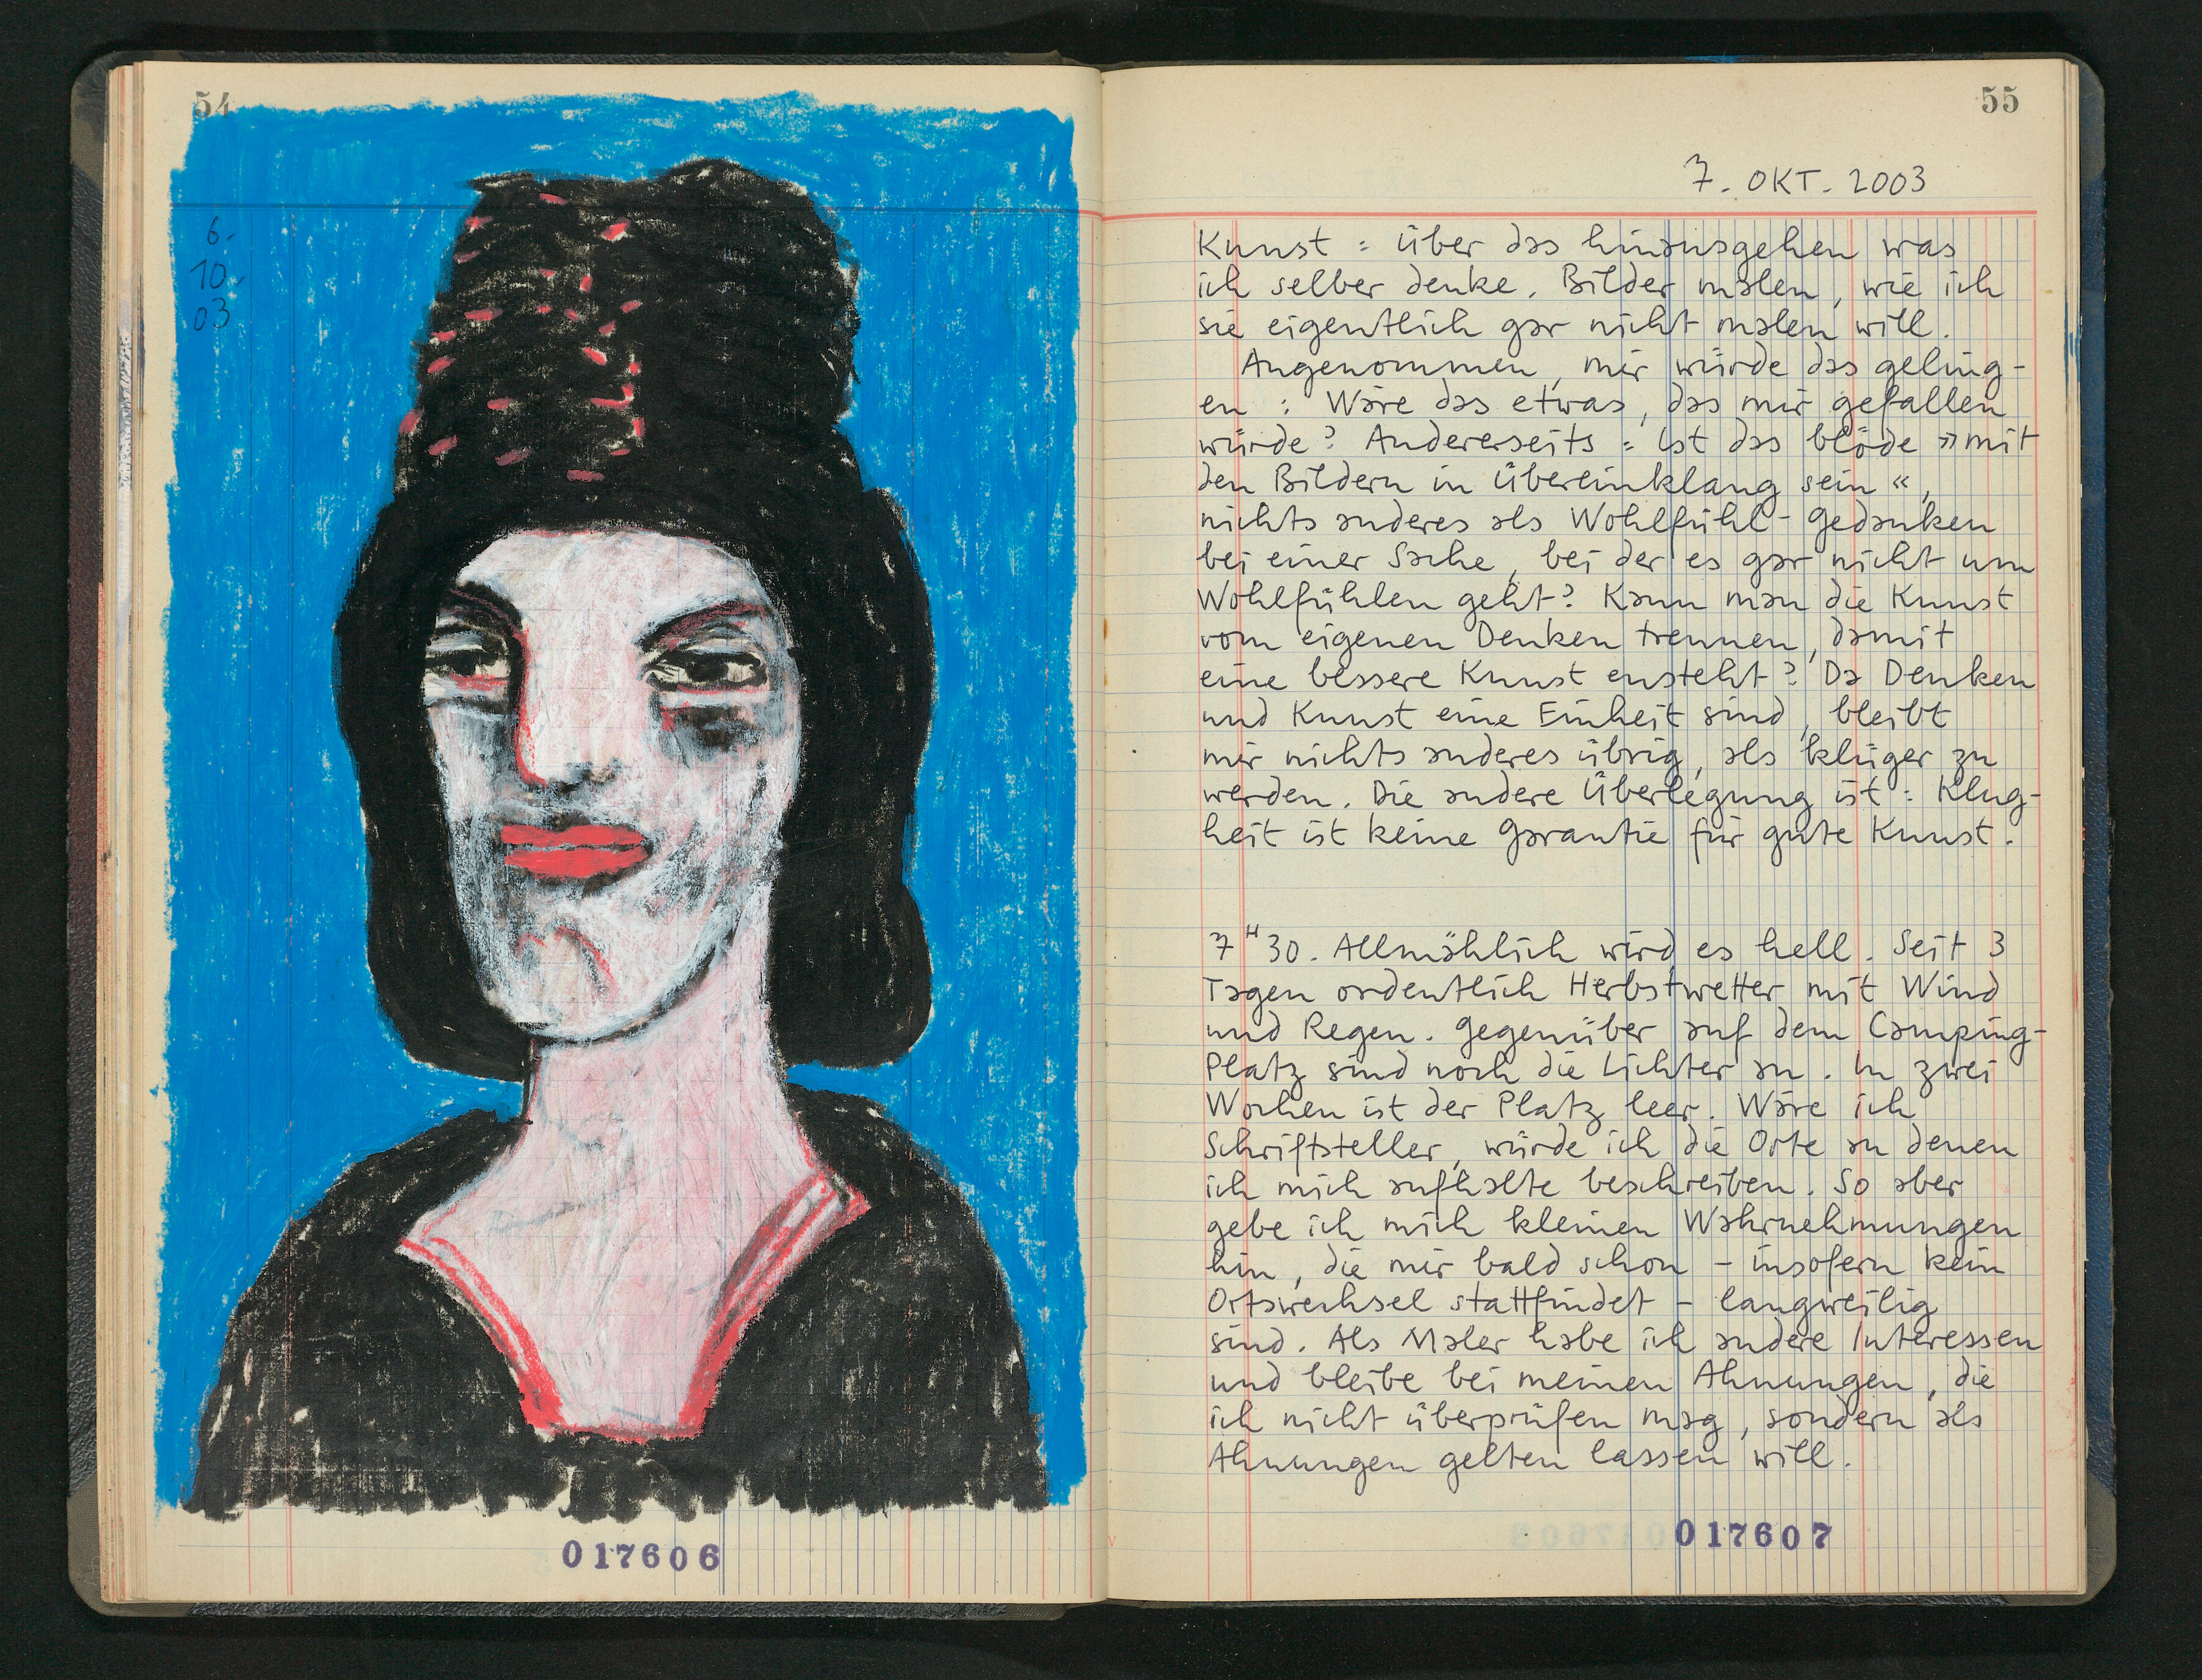 54
6.
10.
03
017606
55
7. OKT. 2003
Kunst : Über das hinausgehen was
ich selber denke. Bilder malen, wie ich
sie eigentlich gar nicht malen will.
Angenommen, mir würde das geling-
en : Wäre das etwas, das mir gefallen
würde? Andererseits : Ist das blöde »mit
den Bildern in Übereinklang sein«,
nichts anderes als Wohlfühl-Gedanken
bei einer Sache, bei der es gar nicht um
Wohlfühlen geht? Kann man die Kunst
vom eigenen Denken trennen, damit
eine bessere Kunst ensteht? Da Denken
und Kunst eine Einheit sind, bleibt
mir nichts anderes übrig, als klüger zu
werden. Die andere Überlegung ist : Klug-
heit ist keine Garantie für gute Kunst.
7 H 30. Allmählich wird es hell. Seit 3
Tagen ordentlich Herbstwetter mit Wind
und Regen. Gegenüber auf dem Camping-
Platz sind noch die Lichter an. In zwei
Wochen ist der Platz leer. Wäre ich
Schriftsteller, würde ich die Orte an denen
ich mich aufhalte beschreiben. So aber
gebe ich mich kleinen Wahrnehmungen
hin, die mir bald schon – insofern kein
Ortswechsel stattfindet – langweilig
sind. Als Maler habe ich andere Interessen
und bleibe bei meinen Ahnungen, die
ich nicht überprüfen mag, sondern als
Ahnungen gelten lassen will.
017607